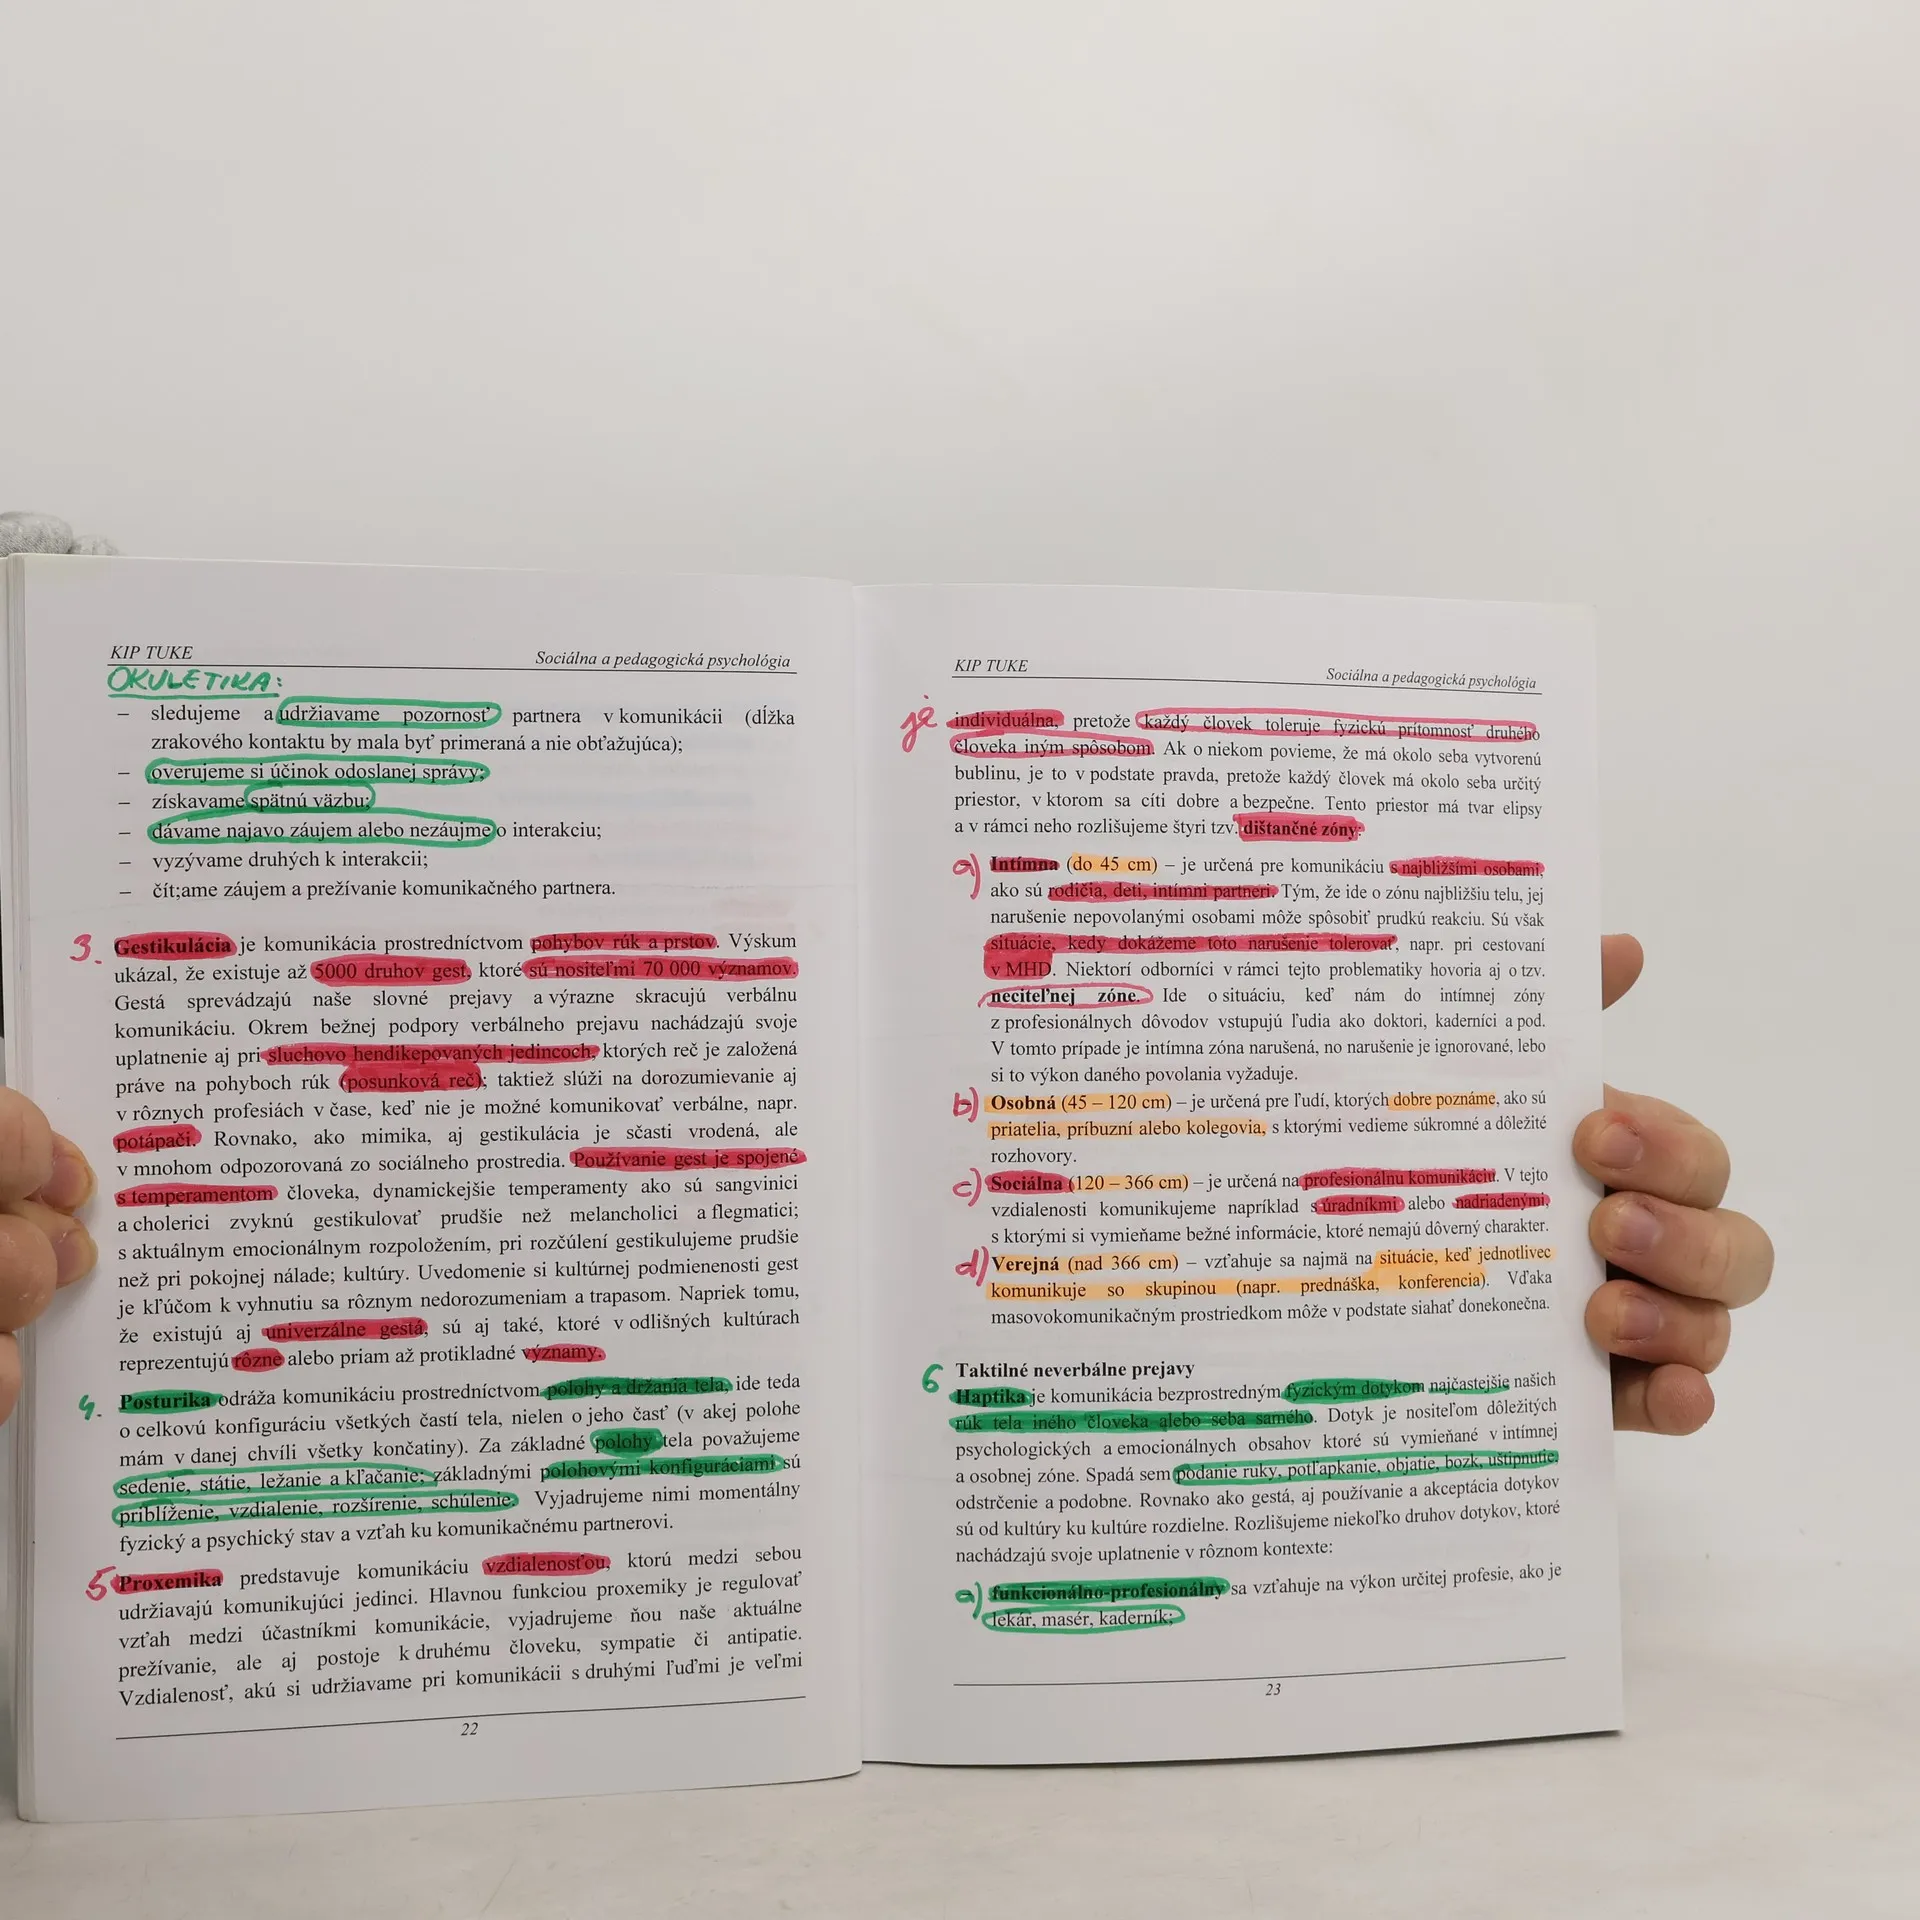 KIP TUKE Sociálna a pedagogická psychológia
OKULETIKA:
– sledujeme a udržiavame pozornosť partnera v komunikácii (dĺžka
zrakového kontaktu by mala byť primeraná a nie obťažujúca);
– overujeme si účinok odoslanej správy;
– získavame spätnú väzbu;
– dávame najavo záujem alebo nezáujme o interakciu;
– vyzývame druhých k interakcii;
– čít;ame záujem a prežívanie komunikačného partnera.
3. Gestikulácia je komunikácia prostredníctvom pohybov rúk a prstov. Výskum
ukázal, že existuje až 5000 druhov gest, ktoré sú nositeľmi 70 000 významov.
Gestá sprevádzajú naše slovné prejavy a výrazne skracujú verbálnu
komunikáciu. Okrem bežnej podpory verbálneho prejavu nachádzajú svoje
uplatnenie aj pri sluchovo hendikepovaných jedincoch, ktorých reč je založená
práve na pohyboch rúk (posunková reč); taktiež slúži na dorozumievanie aj
v rôznych profesiách v čase, keď nie je možné komunikovať verbálne, napr.
potápači. Rovnako, ako mimika, aj gestikulácia je sčasti vrodená, ale
v mnohom odpozorovaná zo sociálneho prostredia. Používanie gest je spojené
s temperamentom človeka, dynamickejšie temperamenty ako sú sangvinici
a cholerici zvyknú gestikulovať prudšie než melancholici a flegmatici;
s aktuálnym emocionálnym rozpoložením, pri rozčúlení gestikulujeme prudšie
než pri pokojnej nálade; kultúry. Uvedomenie si kultúrnej podmienenosti gest
je kľúčom k vyhnutiu sa rôznym nedorozumeniam a trapasom. Napriek tomu,
že existujú aj univerzálne gestá, sú aj také, ktoré v odlišných kultúrach
reprezentujú rôzne alebo priam až protikladné významy.
4. Posturika odráža komunikáciu prostredníctvom polohy a držania tela, ide teda
o celkovú konfiguráciu všetkých častí tela, nielen o jeho časť (v akej polohe
mám v danej chvíli všetky končatiny). Za základné polohy tela považujeme
sedenie, státie, ležanie a kľačanie; základnými polohovými konfiguráciami sú
priblíženie, vzdialenie, rozšírenie, schúlenie. Vyjadrujeme nimi momentálny
fyzický a psychický stav a vzťah ku komunikačnému partnerovi.
5 Proxemika predstavuje komunikáciu vzdialenosťou, ktorú medzi sebou
udržiavajú komunikujúci jedinci. Hlavnou funkciou proxemiky je regulovať
vzťah medzi účastníkmi komunikácie, vyjadrujeme ňou naše aktuálne
prežívanie, ale aj postoje k druhému človeku, sympatie či antipatie.
Vzdialenosť, akú si udržiavame pri komunikácii s druhými ľuďmi je veľmi
22
KIP TUKE Sociálna a pedagogická psychológia
je individuálna, pretože každý človek toleruje fyzickú prítomnosť druhého
človeka iným spôsobom. Ak o niekom povieme, že má okolo seba vytvorenú
bublinu, je to v podstate pravda, pretože každý človek má okolo seba určitý
priestor, v ktorom sa cíti dobre a bezpečne. Tento priestor má tvar elipsy
a v rámci neho rozlišujeme štyri tzv. dištančné zóny:
a) Intímna (do 45 cm) – je určená pre komunikáciu s najbližšími osobami,
ako sú rodičia, deti, intímni partneri. Tým, že ide o zónu najbližšiu telu, jej
narušenie nepovolanými osobami môže spôsobiť prudkú reakciu. Sú však
situácie, kedy dokážeme toto narušenie tolerovať, napr. pri cestovaní
v MHD. Niektorí odborníci v rámci tejto problematiky hovoria aj o tzv.
neciteľnej zóne. Ide o situáciu, keď nám do intímnej zóny
z profesionálnych dôvodov vstupujú ľudia ako doktori, kaderníci a pod.
V tomto prípade je intímna zóna narušená, no narušenie je ignorované, lebo
si to výkon daného povolania vyžaduje.
b) Osobná (45 – 120 cm) – je určená pre ľudí, ktorých dobre poznáme, ako sú
priatelia, príbuzní alebo kolegovia, s ktorými vedieme súkromné a dôležité
rozhovory.
c) Sociálna (120 – 366 cm) – je určená na profesionálnu komunikáciu. V tejto
vzdialenosti komunikujeme napríklad s úradníkmi alebo nadriadenými,
s ktorými si vymieňame bežné informácie, ktoré nemajú dôverný charakter.
d) Verejná (nad 366 cm) – vzťahuje sa najmä na situácie, keď jednotlivec
komunikuje so skupinou (napr. prednáška, konferencia). Vďaka
masovokomunikačným prostriedkom môže v podstate siahať donekonečna.
6 Taktilné neverbálne prejavy
Haptika je komunikácia bezprostredným fyzickým dotykom najčastejšie našich
rúk tela iného človeka alebo seba samého. Dotyk je nositeľom dôležitých
psychologických a emocionálnych obsahov ktoré sú vymieňané v intímnej
a osobnej zóne. Spadá sem podanie ruky, potľapkanie, objatie, bozk, uštipnutie,
odstrčenie a podobne. Rovnako ako gestá, aj používanie a akceptácia dotykov
sú od kultúry ku kultúre rozdielne. Rozlišujeme niekoľko druhov dotykov, ktoré
nachádzajú svoje uplatnenie v rôznom kontexte:
a) funkcionálno-profesionálny sa vzťahuje na výkon určitej profesie, ako je
lekár, masér, kaderník;
23